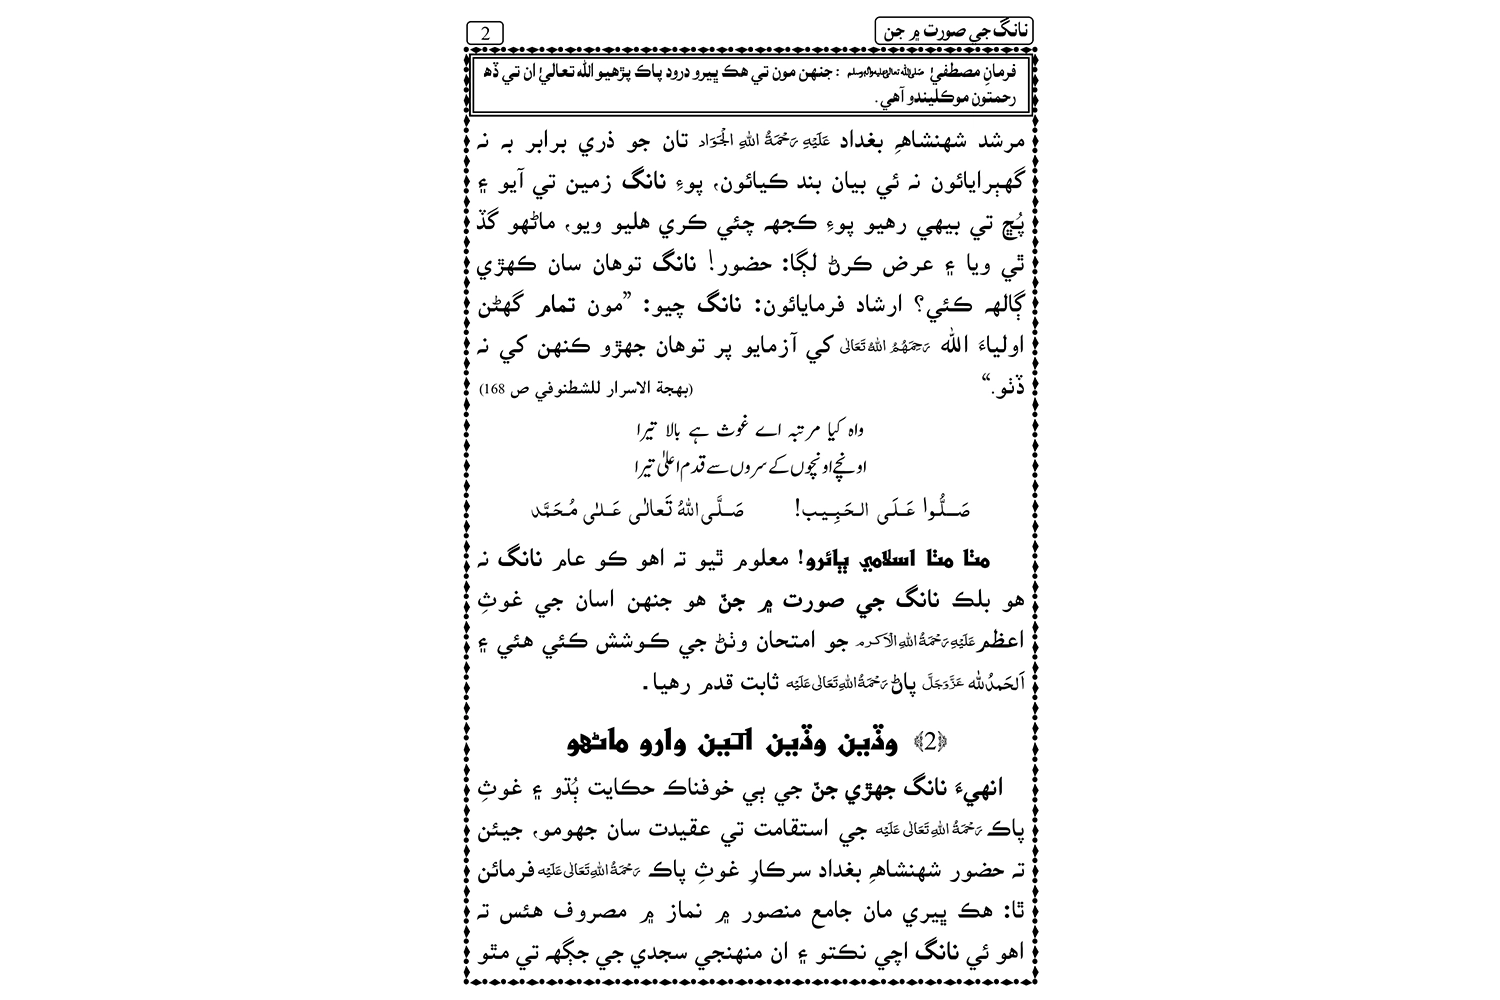 نانگ جي صورت ۾ جن
2
فرمانِ مصطفيٰ صلى الله تعالى عليه واله وسلم : جنهن مون تي هڪ ڀيرو درود پاڪ پڙهيو الله تعاليٰ ان تي ڏھ
رحمتون موڪليندو آهي.
مرشد شهنشاھِ بغداد عَلَيْهِ رَحْمَةُ اللهِ الْجَوَاد تان جو ذري برابر به نہ
گهٻرايائون نہ ئي بيان بند ڪيائون، پوءِ نانگ زمين تي آيو ۽
پُڇ تي بيهي رهيو پوءِ ڪجهہ چئي ڪري هليو ويو، ماڻهو گڏ
ٿي ويا ۽ عرض ڪرڻ لڳا: حضور! نانگ توهان سان ڪهڙي
ڳالهہ ڪئي؟ ارشاد فرمايائون: نانگ چيو: ”مون تمام گهڻن
اولياءَ الله رَحِمَهُمُ اللهُ تَعَالٰی کي آزمايو پر توهان جهڙو ڪنهن کي نہ
ڏٺو.“ (بهجة الاسرار للشطنوفي ص 168)
واہ کیا مرتبہ اے غوث ہے بالا تیرا
اونچے اونچوں کے سروں سے قدم اعلیٰ تیرا
صَلُّوا عَلَی الحَبِیب! صَلَّی اللهُ تَعَالٰی عَلٰی مُحَمَّد
مٺا مٺا اسلامي ڀائرو! معلوم ٿيو تہ اهو ڪو عام نانگ نہ
هو بلڪ نانگ جي صورت ۾ جنّ هو جنهن اسان جي غوثِ
اعظم عَلَيْهِ رَحْمَةُ اللهِ الْاَكرم جو امتحان وٺڻ جي ڪوشش ڪئي هئي ۽
اَلحَمدُلله عَزَّوَجَلَّ پاڻ رَحْمَةُ اللهِ تَعَالٰی عَلَیْه ثابت قدم رهيا.
﴿2﴾ وڏين وڏين اکين وارو ماڻهو
انهيءَ نانگ جهڙي جنّ جي ٻي خوفناڪ حڪايت ٻُڌو ۽ غوثِ
پاڪ رَحْمَةُ اللهِ تَعَالٰی عَلَیْه جي استقامت تي عقيدت سان جهومو، جيئن
تہ حضور شهنشاھِ بغداد سرڪارِ غوثِ پاڪ رَحْمَةُ اللهِ تَعَالٰی عَلَیْه فرمائن
ٿا: هڪ ڀيري مان جامع منصور ۾ نماز ۾ مصروف هئس تہ
اهو ئي نانگ اچي نڪتو ۽ ان منهنجي سجدي جي جڳهہ تي مٿو